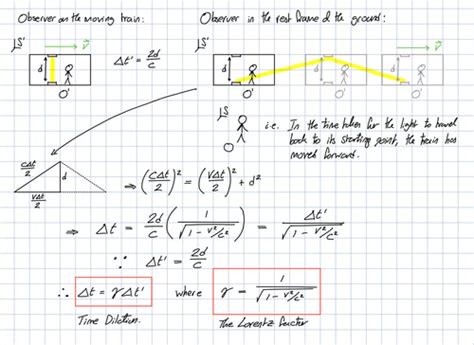 Observer on the moving train:
Observer in the rest frame of the ground:
S'
v
d
O'
Δt' = 2d/c
S'
v
d
O'
d
O'
S
O
i.e. In the time taken for the light to travel
back to its starting point, the train has
moved forward.
cΔt/2
d
vΔt/2
⇒ (cΔt/2)² = (vΔt/2)² + d²
⇒ Δt = 2d/c (1/√(1 - v²/c²)) = Δt'/√(1 - v²/c²)
∵ Δt' = 2d/c
∴ Δt = γΔt' where γ = 1/√(1 - v²/c²)
Time Dilation.
The Lorentz factor